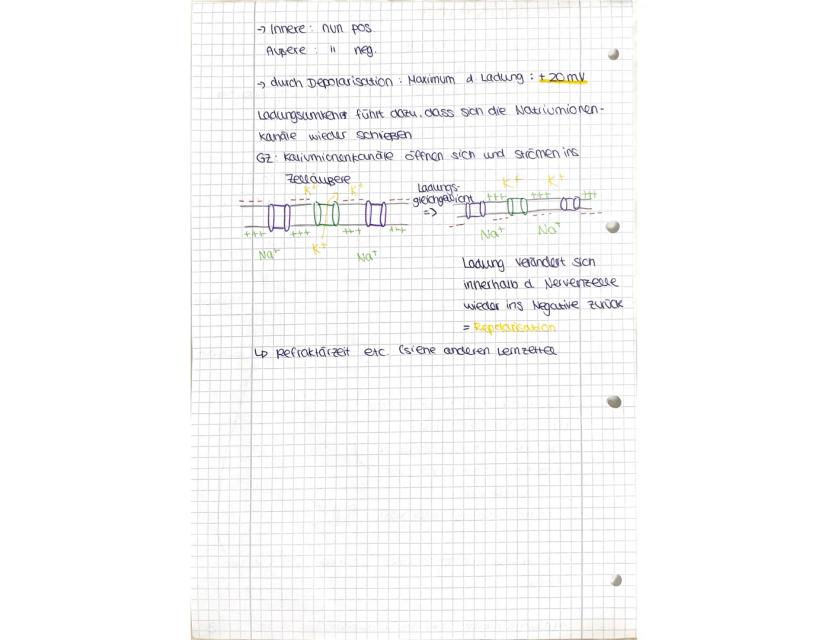 → Innere: nun pos.
Äußere: " neg.
→ durch Depolarisation: Maximum d. Ladung: +20mV
Ladungsumkehr führt dazu, dass sich die Natriumionen-
kanäle wieder schließen
GZ: Kaliumionenkanäle öffnen sich und strömen ins
Zelläußere
K+ K+
--- --- --- ---
+++ +++ +++ +++
Na+ K+ Na+
Ladungs-
gleichgewicht
=>
K+ K+
+++ +++ +++
--- --- --- ---
Na+ Na+
Ladung verändert sich
innerhalb d. Nervenzelle
wieder ins Negative zurück
= Repolarisation
↳ Refraktärzeit etc. (siehe anderen Lernzettel